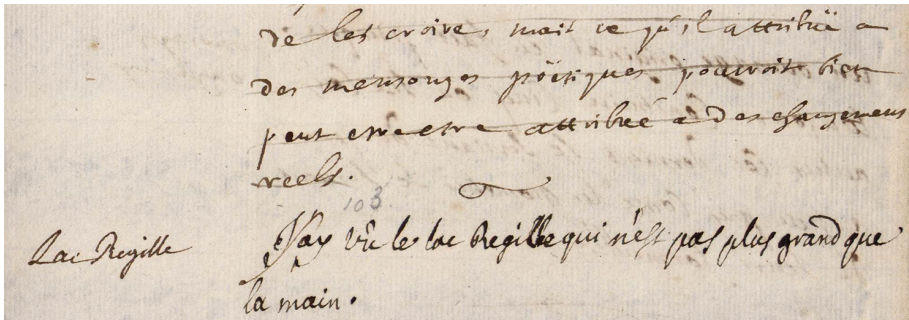 de les croire, mais ce qu'il attribüe a
des mensonges poëtiques pouvroit bien
peut estre estre attribué a des changemens
reels.
103
Lac Regille J'ay vu le lac Regille qui n'est pas plus grand que
la main.